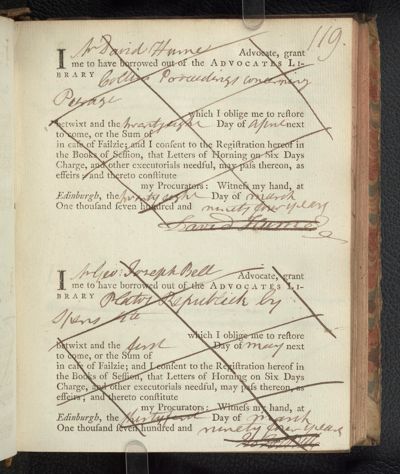 119.
I Mr David Hume Advocate, grant
me to have borrowed out of the ADVOCATES LI-
BRARY Collins Proceedings concerning
Peerage
which I oblige me to reſtore
betwixt and the twenty eight Day of April next
to come, or the Sum of
in caſe of Failzie; and I conſent to the Regiſtration hereof in
the Books of Seſſion, that Letters of Horning on Six Days
Charge, and other executorials needful, may paſs thereon, as
effeirs; and thereto conſtitute
my Procurators: Witneſs my hand, at
Edinburgh, the twenty eight Day of March
One thouſand ſeven hundred and ninety four years
David Hume
I Mr Geo: Joseph Bell Advocate, grant
me to have borrowed out of the ADVOCATES LI-
BRARY Platos Republick by
Spens
which I oblige me to reſtore
betwixt and the first Day of May next
to come, or the Sum of
in caſe of Failzie; and I conſent to the Regiſtration hereof in
the Books of Seſſion, that Letters of Horning on Six Days
Charge, and other executorials needful, may paſs thereon, as
effeirs; and thereto conſtitute
my Procurators: Witneſs my hand, at
Edinburgh, the thirty first Day of March
One thouſand ſeven hundred and ninety four years